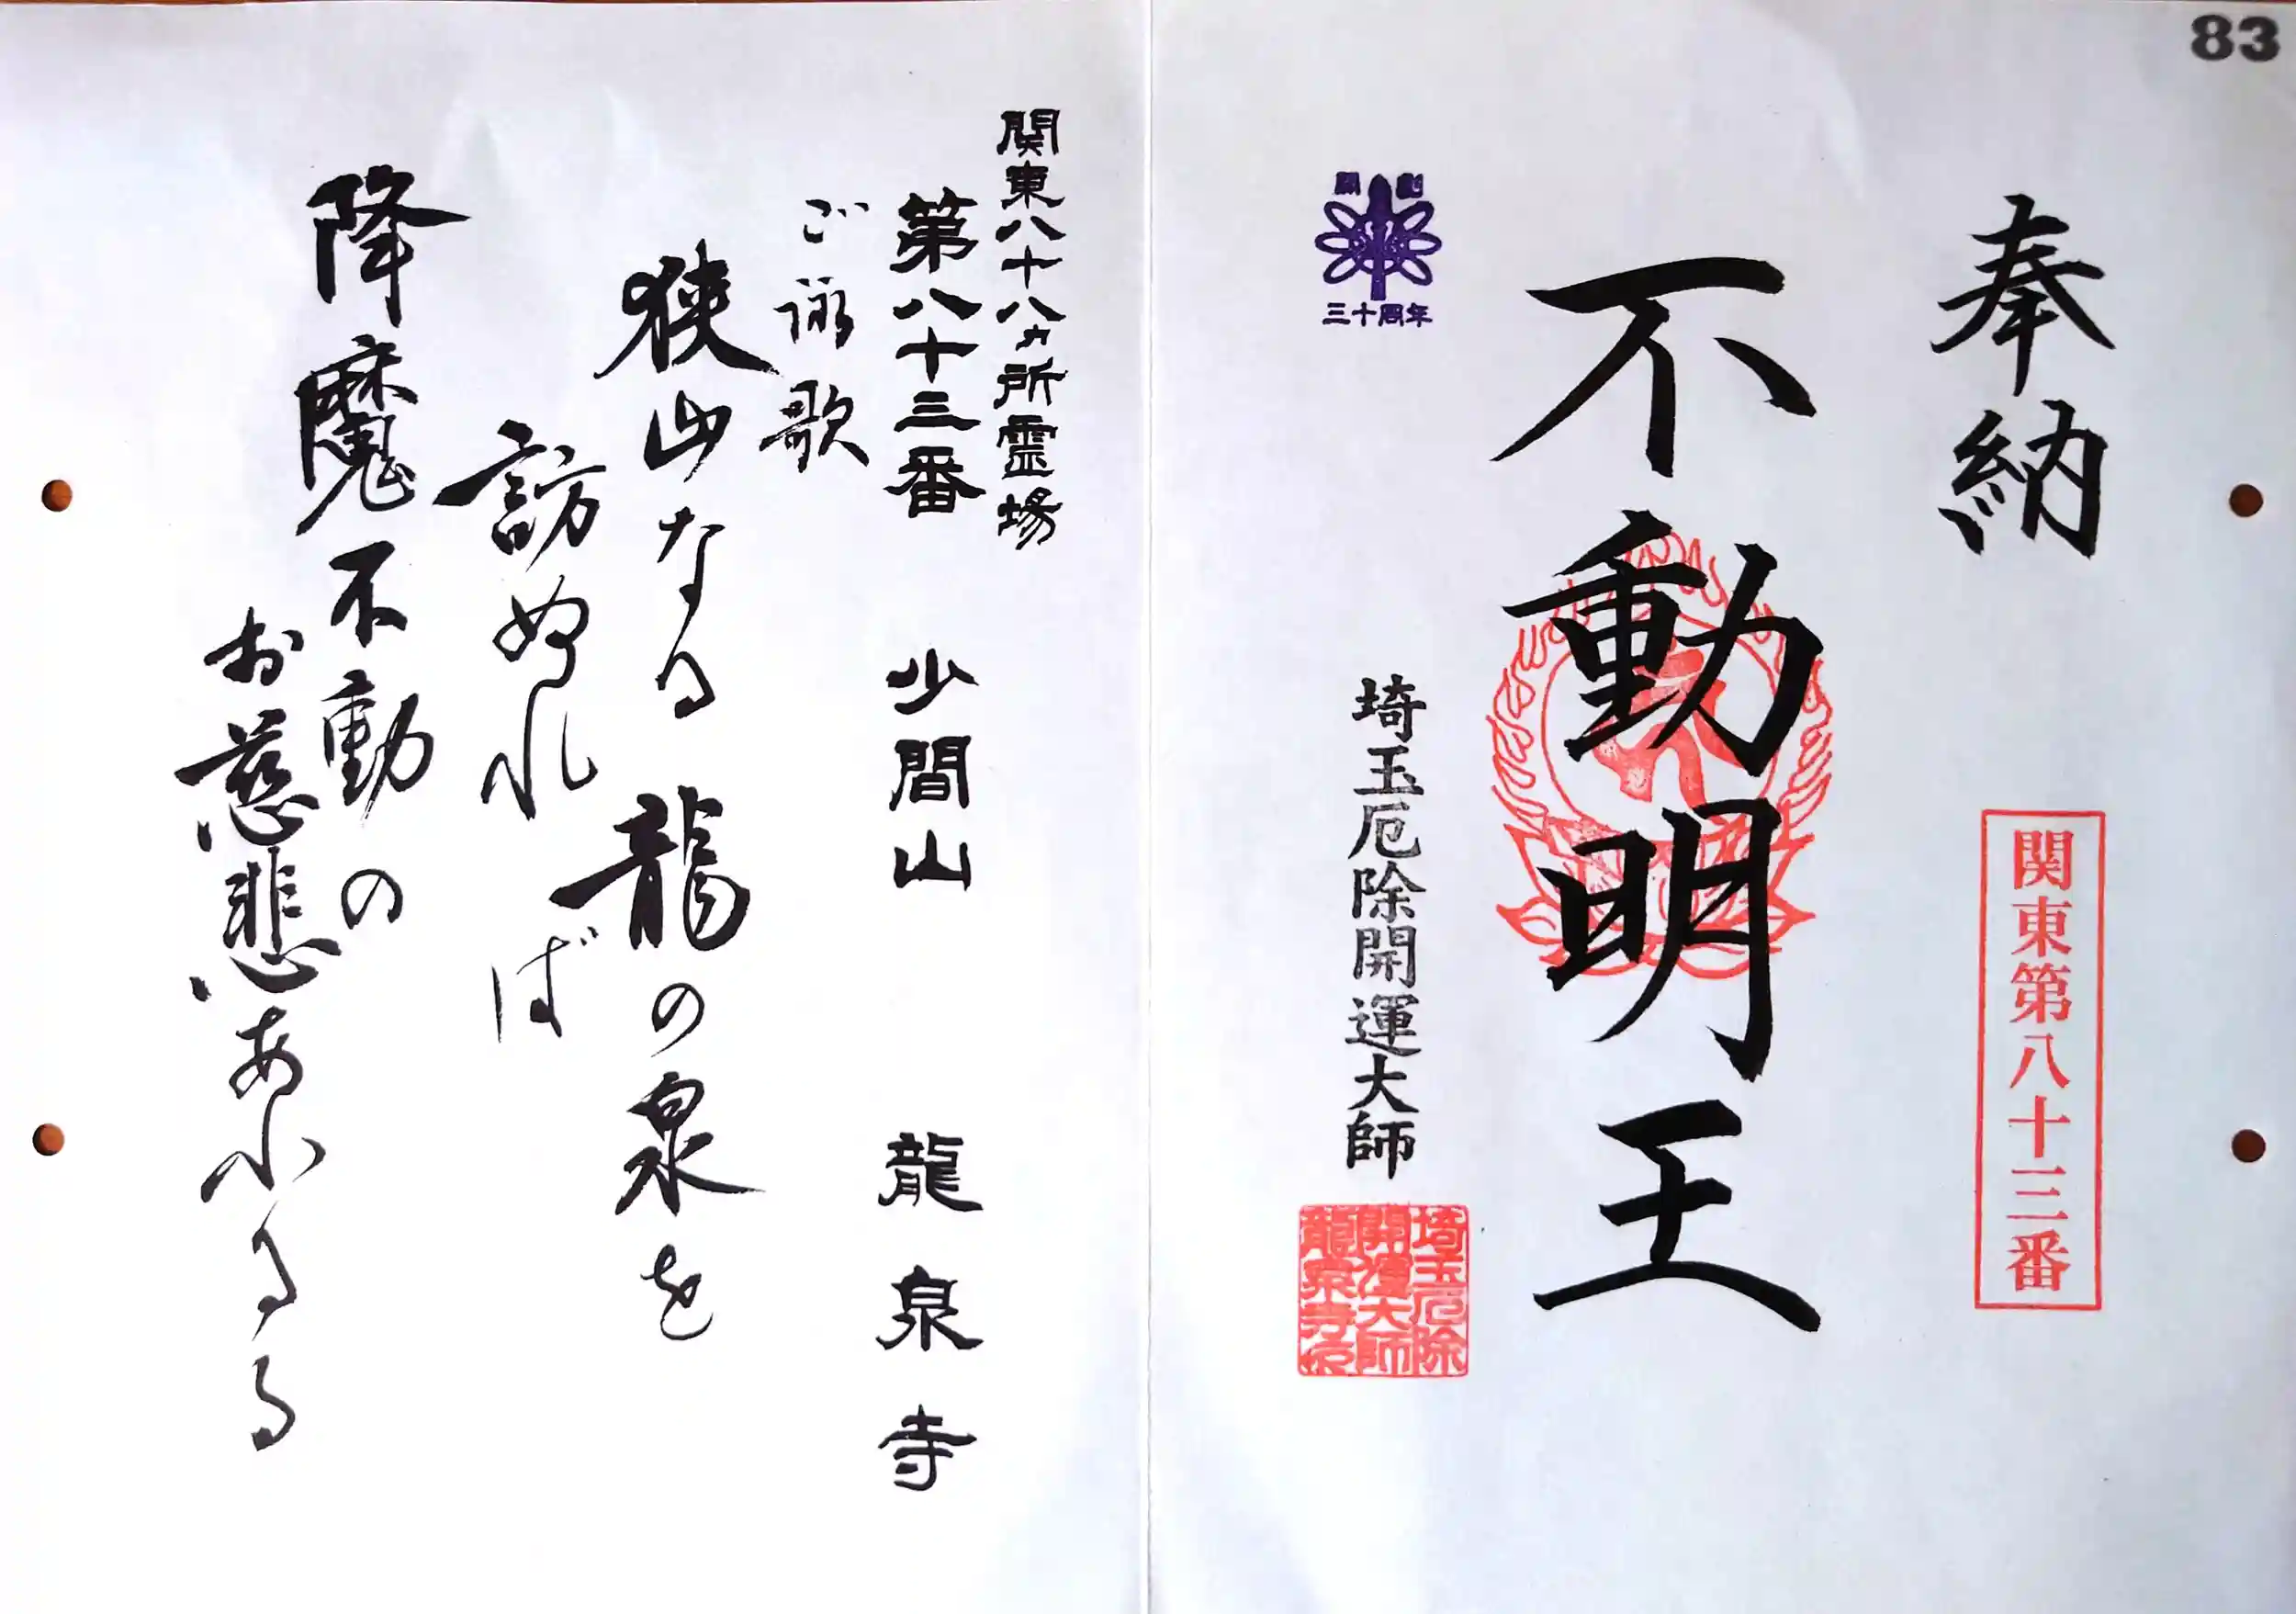 83
奉納
関東第八十三番
不動明王
開創
三十周年
埼玉厄除開運大師
埼玉厄除
開運大師
龍泉寺
関東八十八ヵ所霊場
第八十三番 少間山 龍泉寺
ご詠歌
狭山なる龍の泉を
訪ぬれば
降魔不動の
お慈悲あふるる